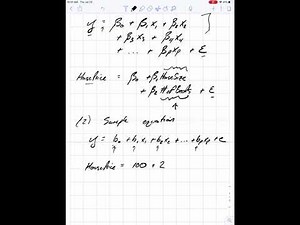 y = β₀ + β₁x₁ + β₂x₂
+ β₃x₃ + β₄x₄
+ ... + βpxp + ε
HousePrice = β₀ + β₁HouseSize
+ β₂ # of Beds + ε
(2) Sample equation
y = b₀ + b₁x₁ + b₂x₂ + ... + bpxp + e
HousePrice = 100 + 2